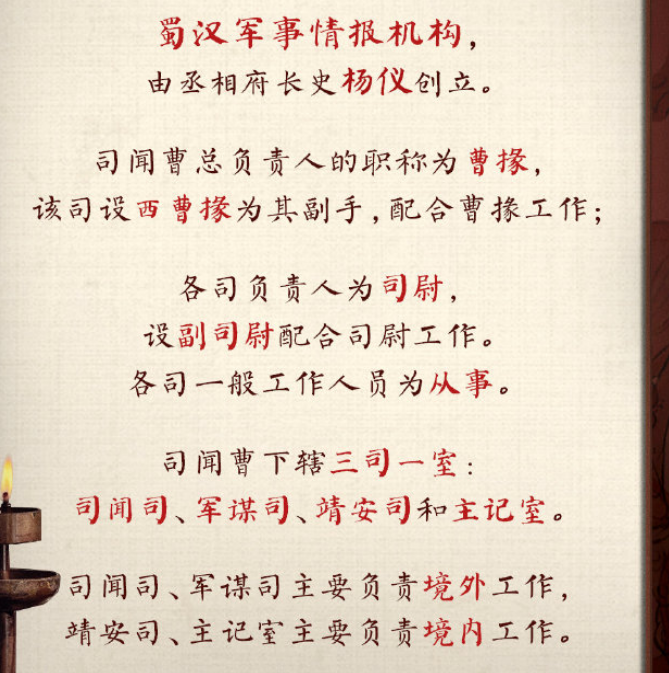 蜀汉军事情报机构，
由丞相府长史杨仪创立。
司闻曹总负责人的职称为曹掾，
该司设西曹掾为其副手，配合曹掾工作；
各司负责人为司尉，
设副司尉配合司尉工作。
各司一般工作人员为从事。
司闻曹下辖三司一室：
司闻司、军谋司、靖安司和主记室。
司闻司、军谋司主要负责境外工作，
靖安司、主记室主要负责境内工作。